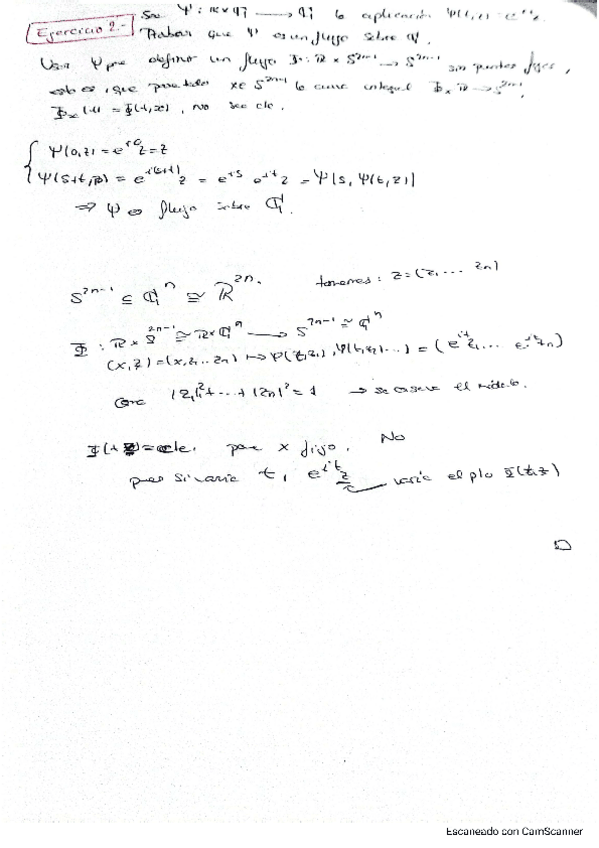 Ejercicio 2.- Sea Ψ: ℝ×ℂ → ℂ la aplicación Ψ(t,z) = e^{it}z.
Probar que Ψ es un flujo sobre ℂ.
Usar Ψ para definir un flujo Φ: ℝ × S^{2n-1} → S^{2n-1} sin puntos fijos,
esto es, que para todo x∈S^{2n-1} la curva integral Φ_x: ℝ → S^{2n-1},
Φ_x(t) = Φ(t,x), no sea cte.
Ψ(0,z) = e^{i0}z = z
Ψ(s+t,z) = e^{i(s+t)}z = e^{is} e^{it} z = Ψ[s, Ψ(t,z)]
⇒ Ψ es flujo sobre ℂ.
S^{2n-1} ⊆ ℂ^n ≅ ℝ^{2n}. tenemos: z = (z₁ ... zn)
Φ: ℝ × S^{2n-1} ≅ ℝ×ℂ^n → S^{2n-1} ≅ ℂ^n
(x,z) = (x, z₁...zn) ↦ Ψ(t,z₁), Ψ(t,z₂)...) = (e^{it}z₁... e^{it}zn)
Como |z₁|²+...+|zn|² = 1 → se conserva el módulo.
= cte. para x fijo. No
pues si varía t, e^{it}z varía el pto Φ(t,z)
Escaneado con CamScanner